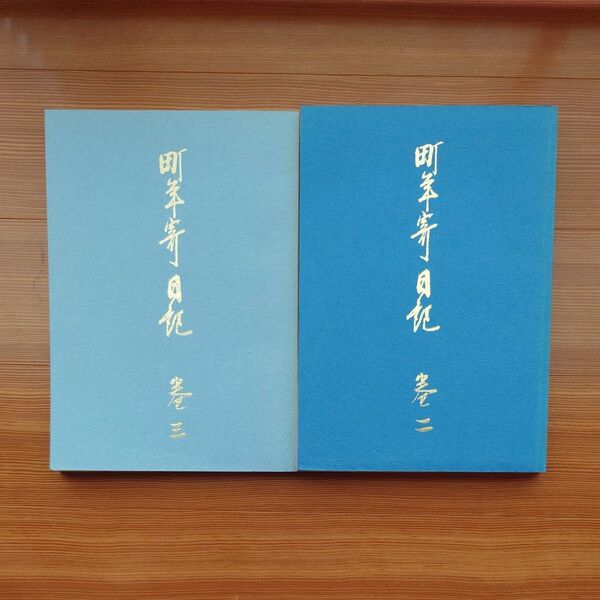 町年寄日記
巻二
町年寄日記
巻三